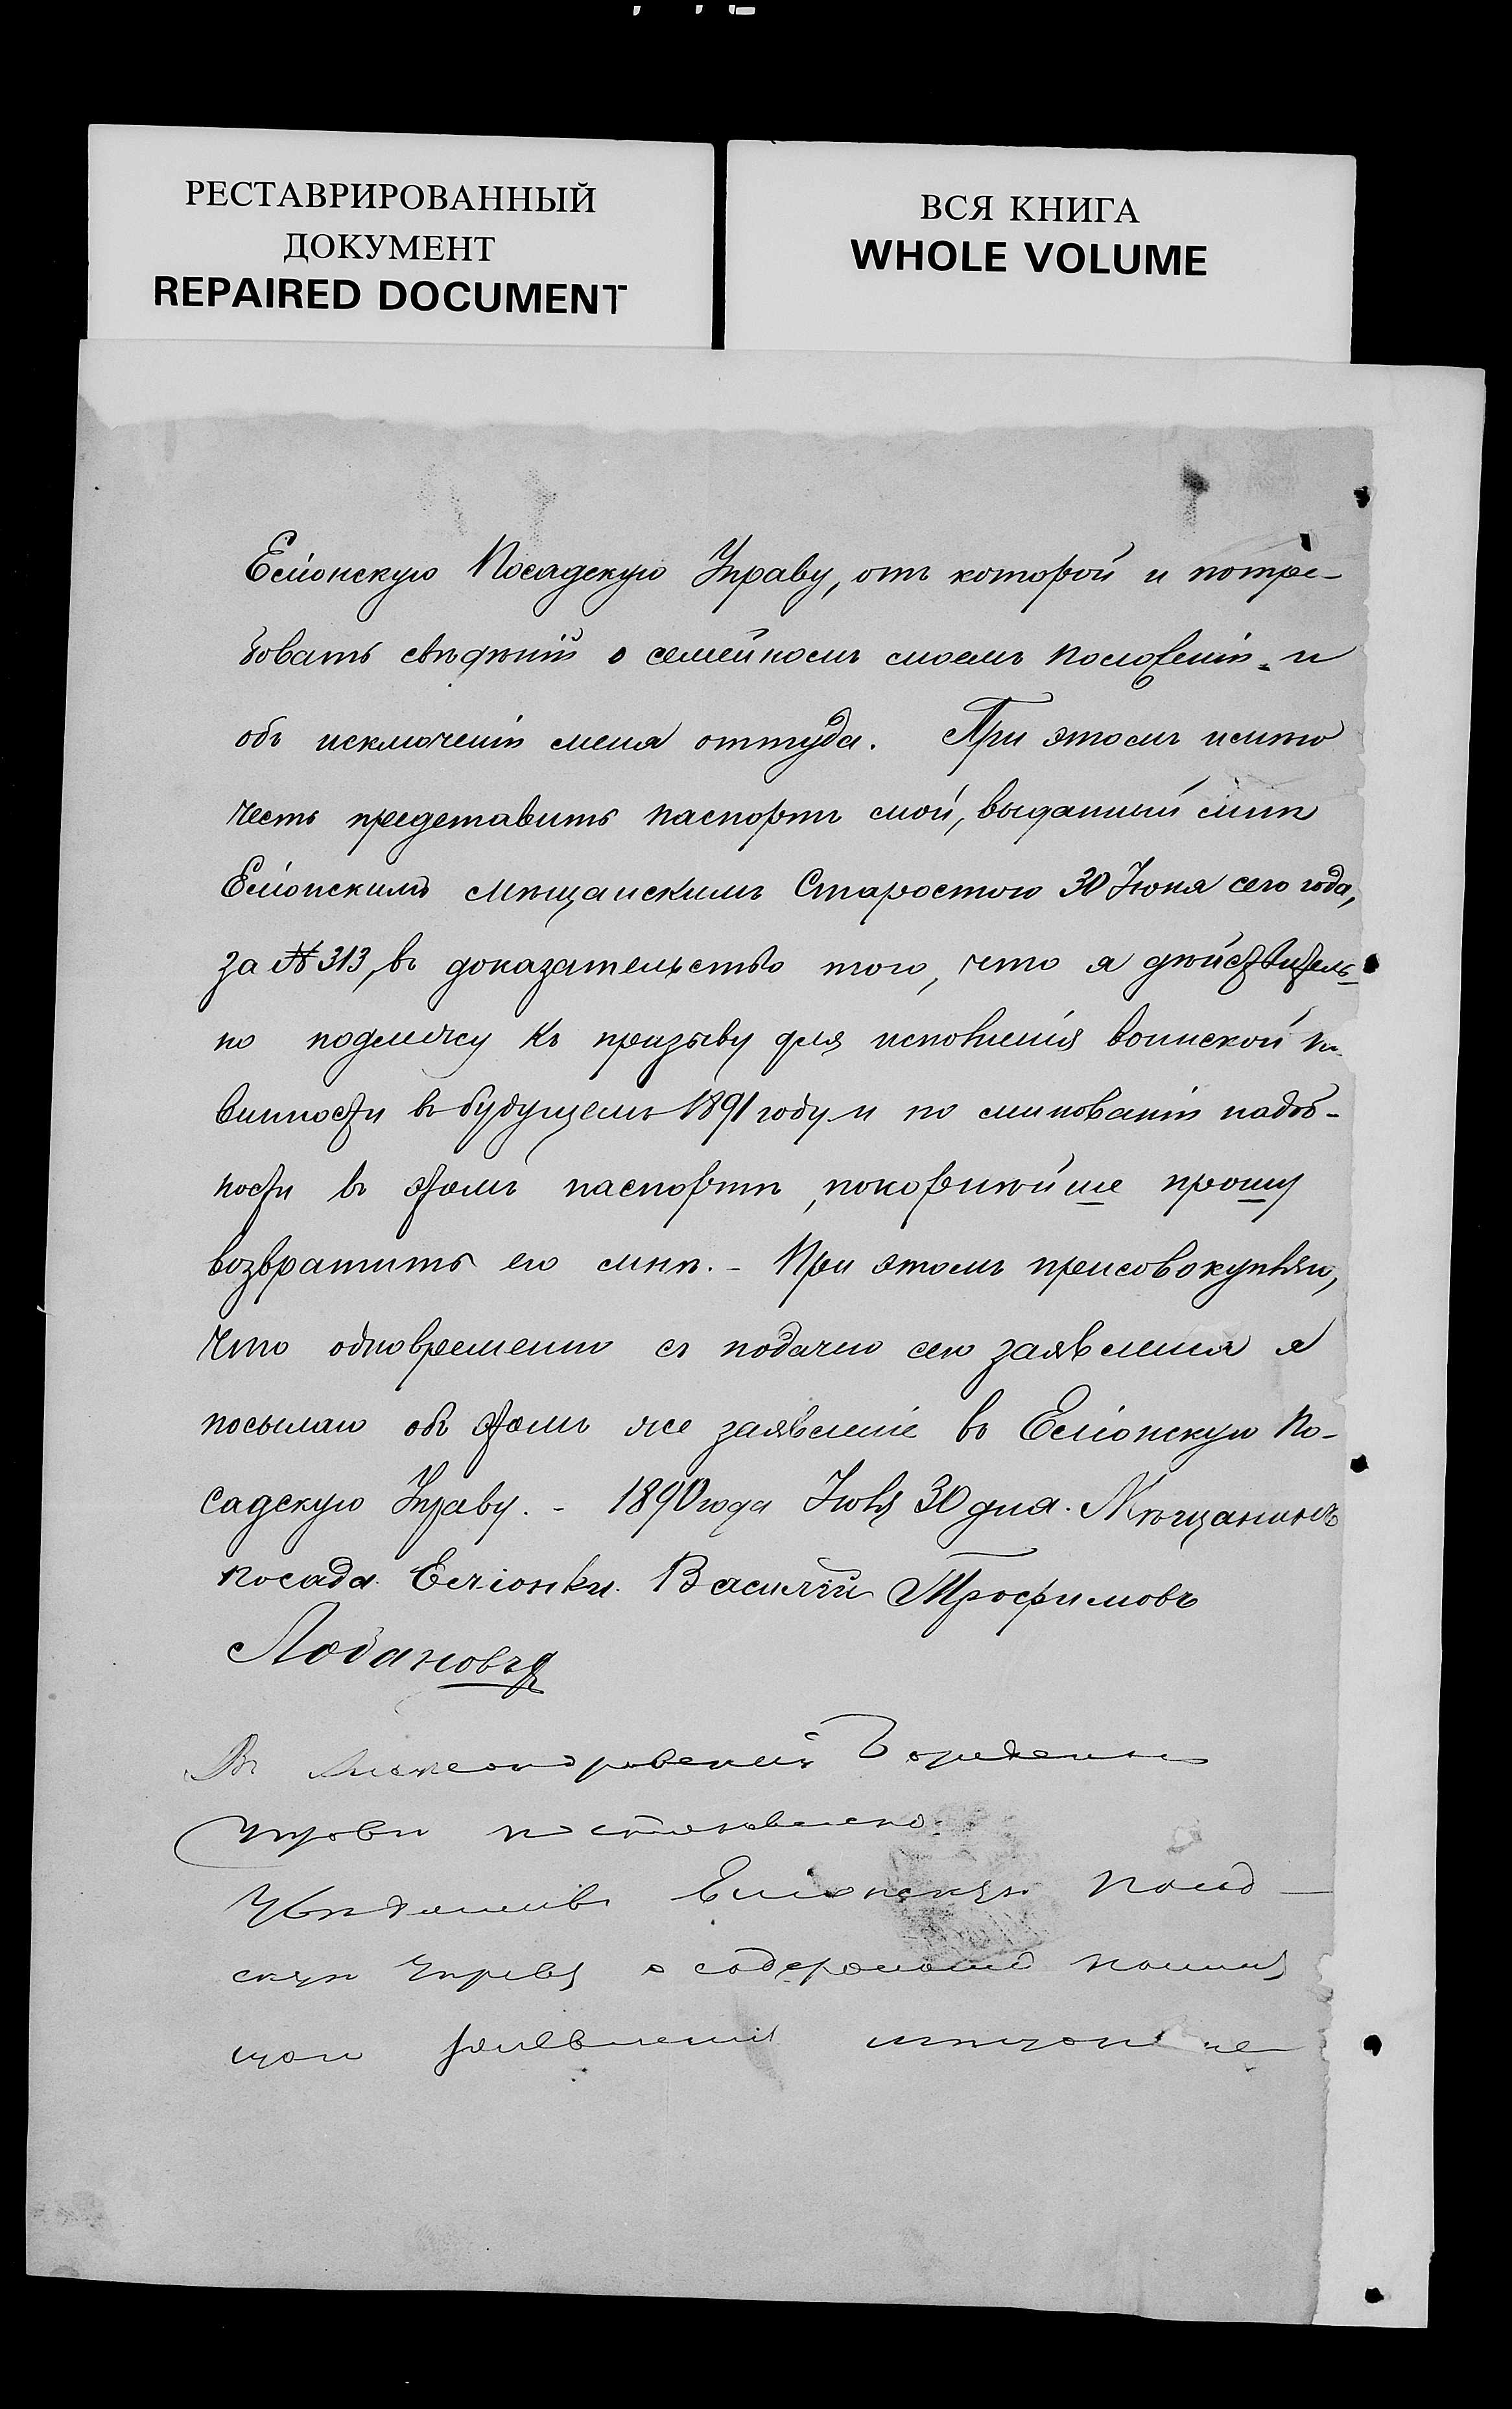 РЕСТАВРИРОВАННЫЙ
ДОКУМЕНТ
REPAIRED DOCUMENT
ВСЯ КНИГА
WHOLE VOLUME
Еміонскую Посадскую Управу, отъ которой и потре-
бовать свѣдѣній о семейномъ моемъ положеніи и
объ исключеніи меня оттуда. При этомъ имѣю
честь представить паспортъ мой, выданный мнѣ
Еміонскимъ мѣщанскимъ Старостою 30 Іюня сего года,
за № 313, въ доказательство того, что я дѣйствитель-
но подлежу къ призыву для исполненія воинской по
винности въ будущемъ 1891 году и по минованіи надоб-
ности въ этомъ паспортѣ, покорнѣйше прошу
возвратить его мнѣ. - При этомъ присовокупляю,
что одновременно съ подачею сего заявленія я
посылаю объ этомъ же заявленіе въ Еміонскую По-
садскую Управу. - 1890 года Іюля 30 дня. Мѣщанинъ
посада Еміонки Василій Трофимовъ
Лобановъ
Въ Александровской Городской
Управѣ постановлено:
Увѣдомивъ Еміонскую Посад-
скую Управу о содержаніи
заявленія